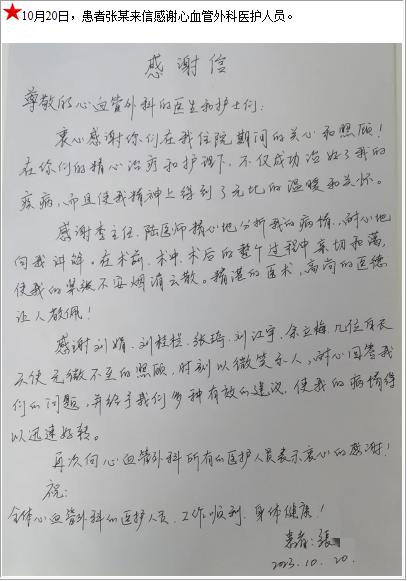 ★10月20日，患者张某来信感谢心血管外科医护人员。
感谢信
尊敬的心血管外科的医生和护士们：
衷心感谢你们在我住院期间的关心和照顾！
在你们的精心治疗和护理下，不仅成功治好了我的
疾病，而且使我精神上得到了无比的温暖和关怀。
感谢李主任、陆医师精心地分析我的病情，耐心地
向我讲解。在术前、术中、术后的整个过程中亲切和蔼，
使我的紧张不安烟消云散。精湛的医术，高尚的医德
让人敬佩！
感谢刘娟、刘桂程、张琦、刘江宇、余立梅几位白衣
天使无微不至的照顾，时刻以微笑示人，耐心回答我
们的问题，并给予我们多种有效的建议，使我的病情得
以迅速好转。
再次向心血管外科所有的医护人员表示衷心的感谢！
祝：
全体心血管外科的医护人员，工作顺利，身体健康！
患者：張
2023.10.20.